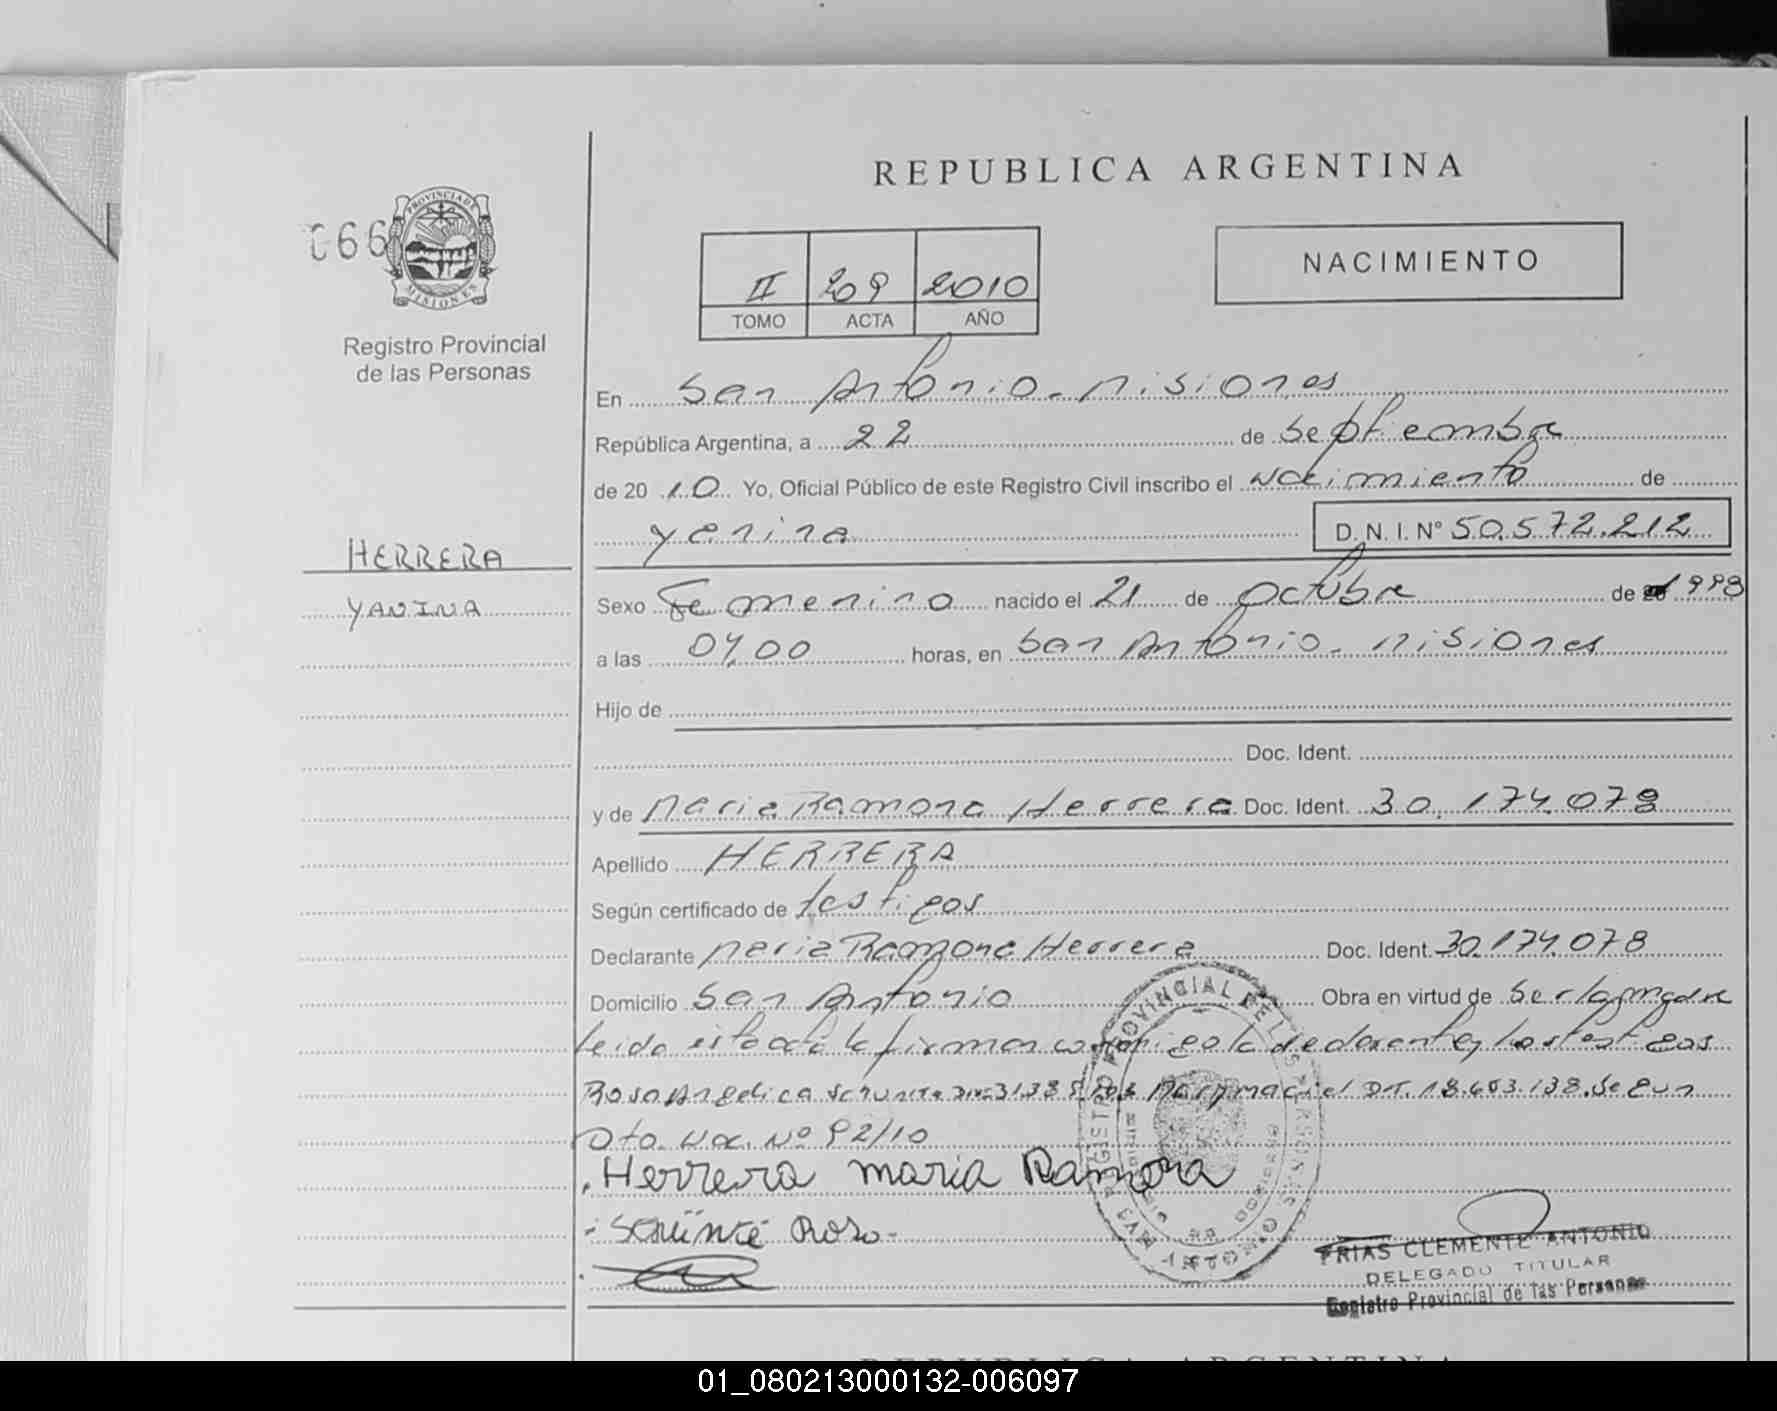 REPUBLICA ARGENTINA
066
PROVINCIA DE MISIONES
Registro Provincial
de las Personas
NACIMIENTO
II 209 2010
TOMO ACTA AÑO
En San Antonio - Misiones
República Argentina, a 22 de Septiembre
de 20 10 Yo, Oficial Público de este Registro Civil inscribo el nacimiento de
Yanina D.N.I. Nº 50.572.212
HERRERA
YANINA
Sexo Femenino nacido el 21 de octubre de 1998
a las 04,00 horas, en San Antonio - Misiones
Hijo de
Doc. Ident.
y de Maria Ramona Herrera Doc. Ident. 30.174.078
Apellido HERRERA
Según certificado de testigos
Declarante Maria Ramona Herrera Doc. Ident. 30.174.078
Domicilio San Antonio Obra en virtud de Ser la madre
Leida esta acta la firman conmigo la declarante y los testigos
Rosa Angelica Maciel 18.603.138. Segun
Dto. Nac. Nº 92/10
Herrera maria Ramona
Rosa
REGISTRO PROVINCIAL DE LAS PERSONAS
SAN ANTONIO
FRIAS CLEMENTE ANTONIO
DELEGADO TITULAR
Registro Provincial de las Personas
REPUBLICA ARGENTINA
01_080213000132-006097